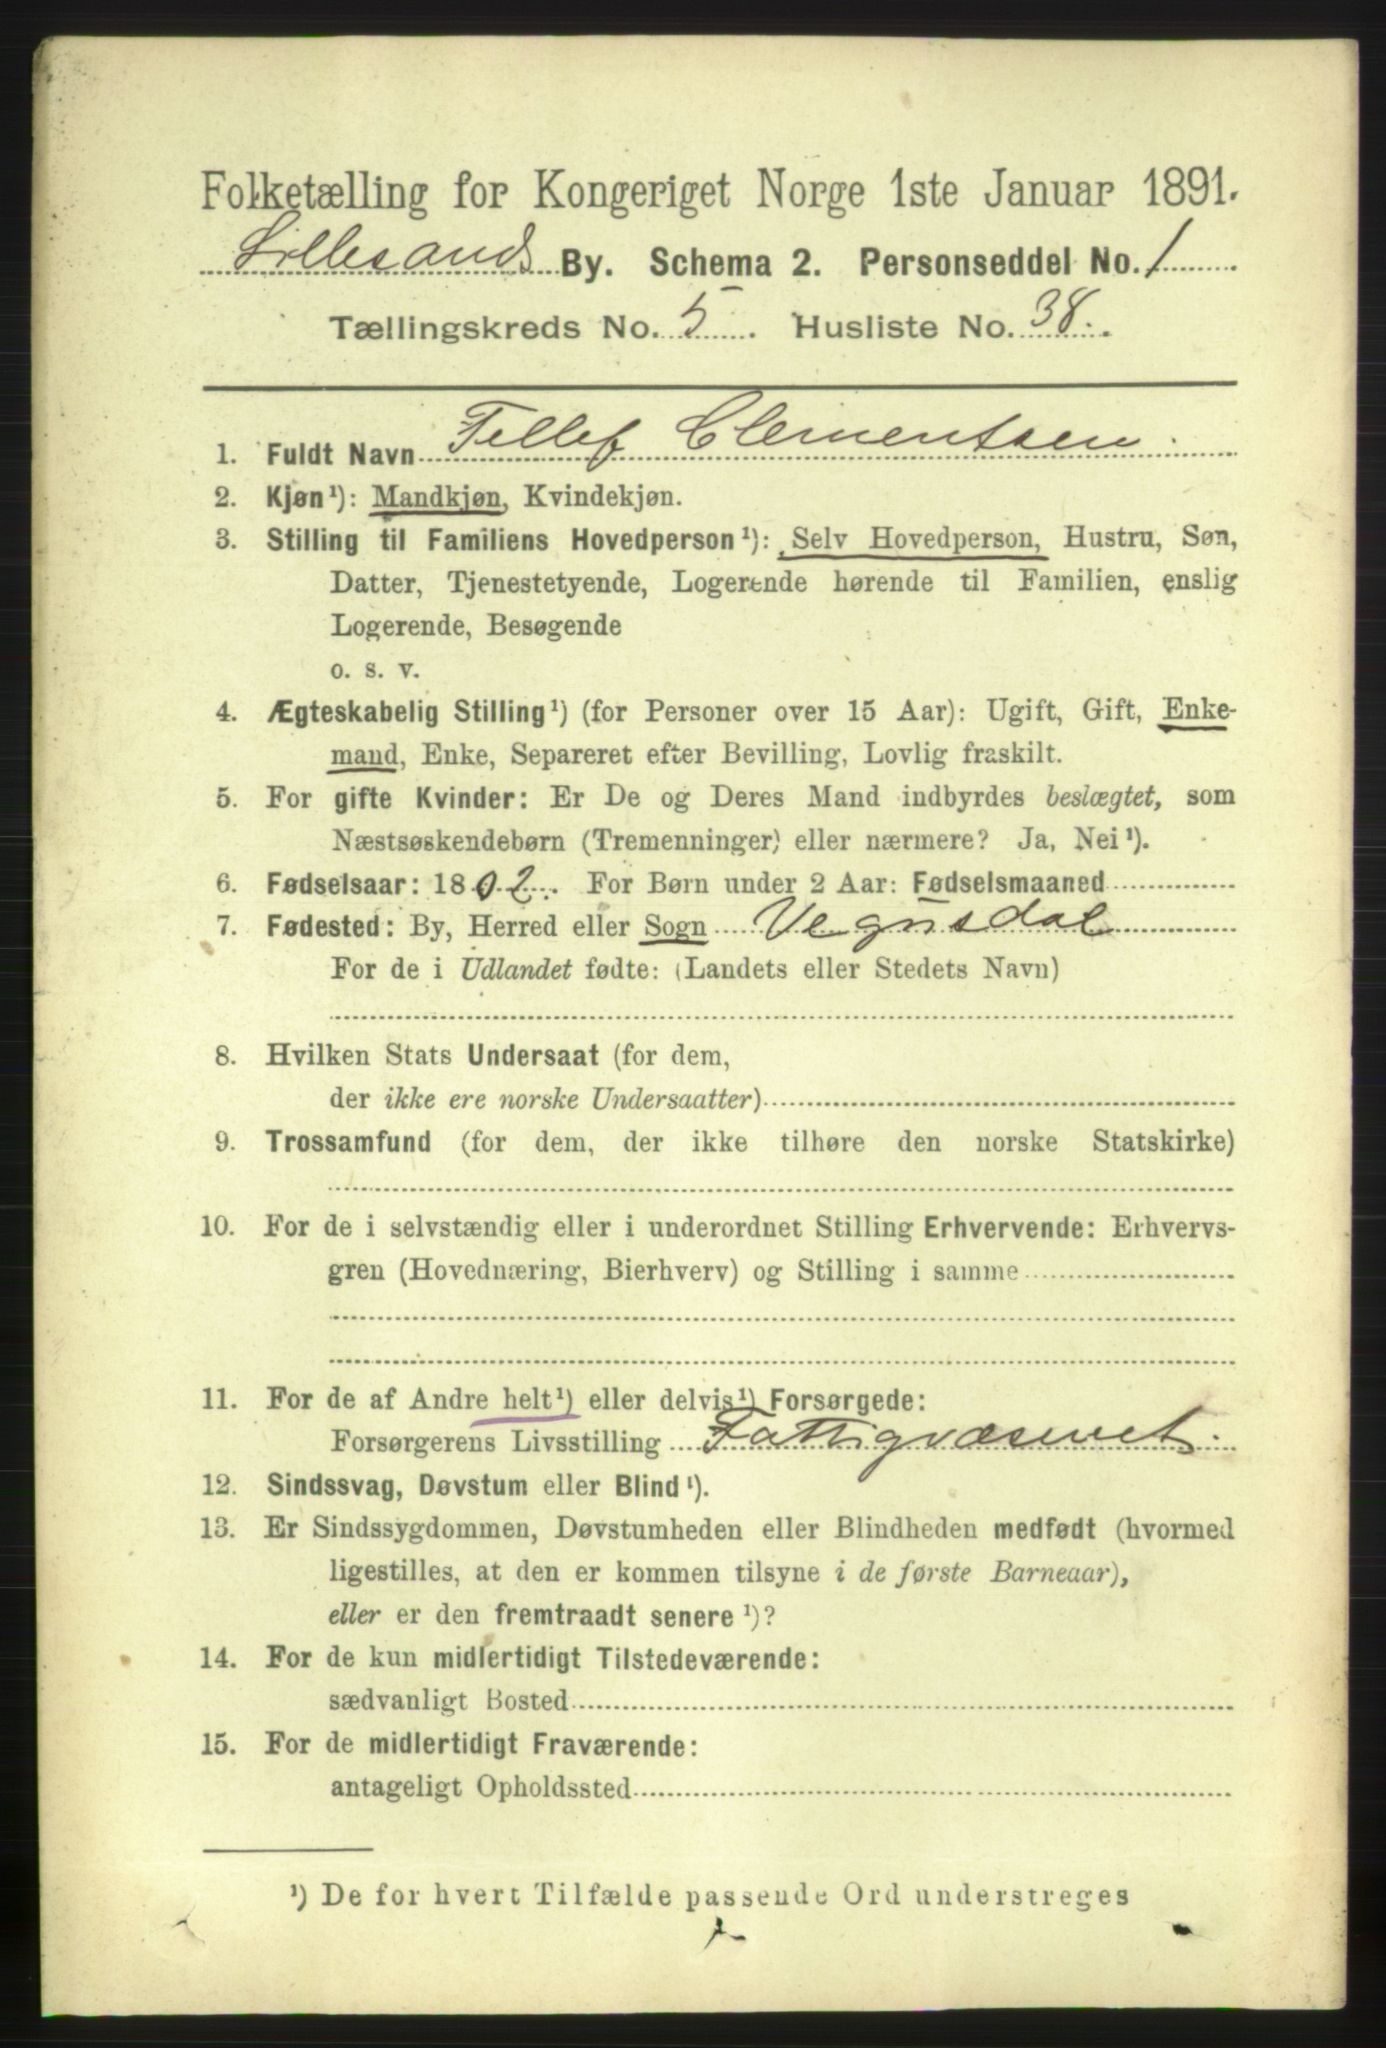 Folketælling for Kongeriget Norge 1ste Januar 1891.
Lillesands By. Schema 2. Personseddel No. 1
Tællingskreds No. 5. Husliste No. 38.
1. Fuldt Navn Tellef Clementsen.
2. Kjøn¹): Mandkjøn, Kvindekjøn.
3. Stilling til Familiens Hovedperson¹): Selv Hovedperson, Hustru, Søn,
Datter, Tjenestetyende, Logerende hørende til Familien, enslig
Logerende, Besøgende
o. s. v.
4. Ægteskabelig Stilling¹) (for Personer over 15 Aar): Ugift, Gift, Enke-
mand, Enke, Separeret efter Bevilling, Lovlig fraskilt.
5. For gifte Kvinder: Er De og Deres Mand indbyrdes beslægtet, som
Næstsøskendebørn (Tremenninger) eller nærmere? Ja, Nei¹).
6. Fødselsaar: 1802. For Børn under 2 Aar: Fødselsmaaned
7. Fødested: By, Herred eller Sogn Vegusdal
For de i Udlandet fødte: (Landets eller Stedets Navn)
8. Hvilken Stats Undersaat (for dem,
der ikke ere norske Undersaatter)
9. Trossamfund (for dem, der ikke tilhøre den norske Statskirke)
10. For de i selvstændig eller i underordnet Stilling Erhvervende: Erhvervs-
gren (Hovednæring, Bierhverv) og Stilling i samme
11. For de af Andre helt¹) eller delvis¹) Forsørgede:
Forsørgerens Livsstilling Fattigvæsenet.
12. Sindssvag, Døvstum eller Blind¹).
13. Er Sindssygdommen, Døvstumheden eller Blindheden medfødt (hvormed
ligestilles, at den er kommen tilsyne i de første Barneaar),
eller er den fremtraadt senere¹)?
14. For de kun midlertidigt Tilstedeværende:
sædvanligt Bosted
15. For de midlertidigt Fraværende:
antageligt Opholdssted
¹) De for hvert Tilfælde passende Ord understreges